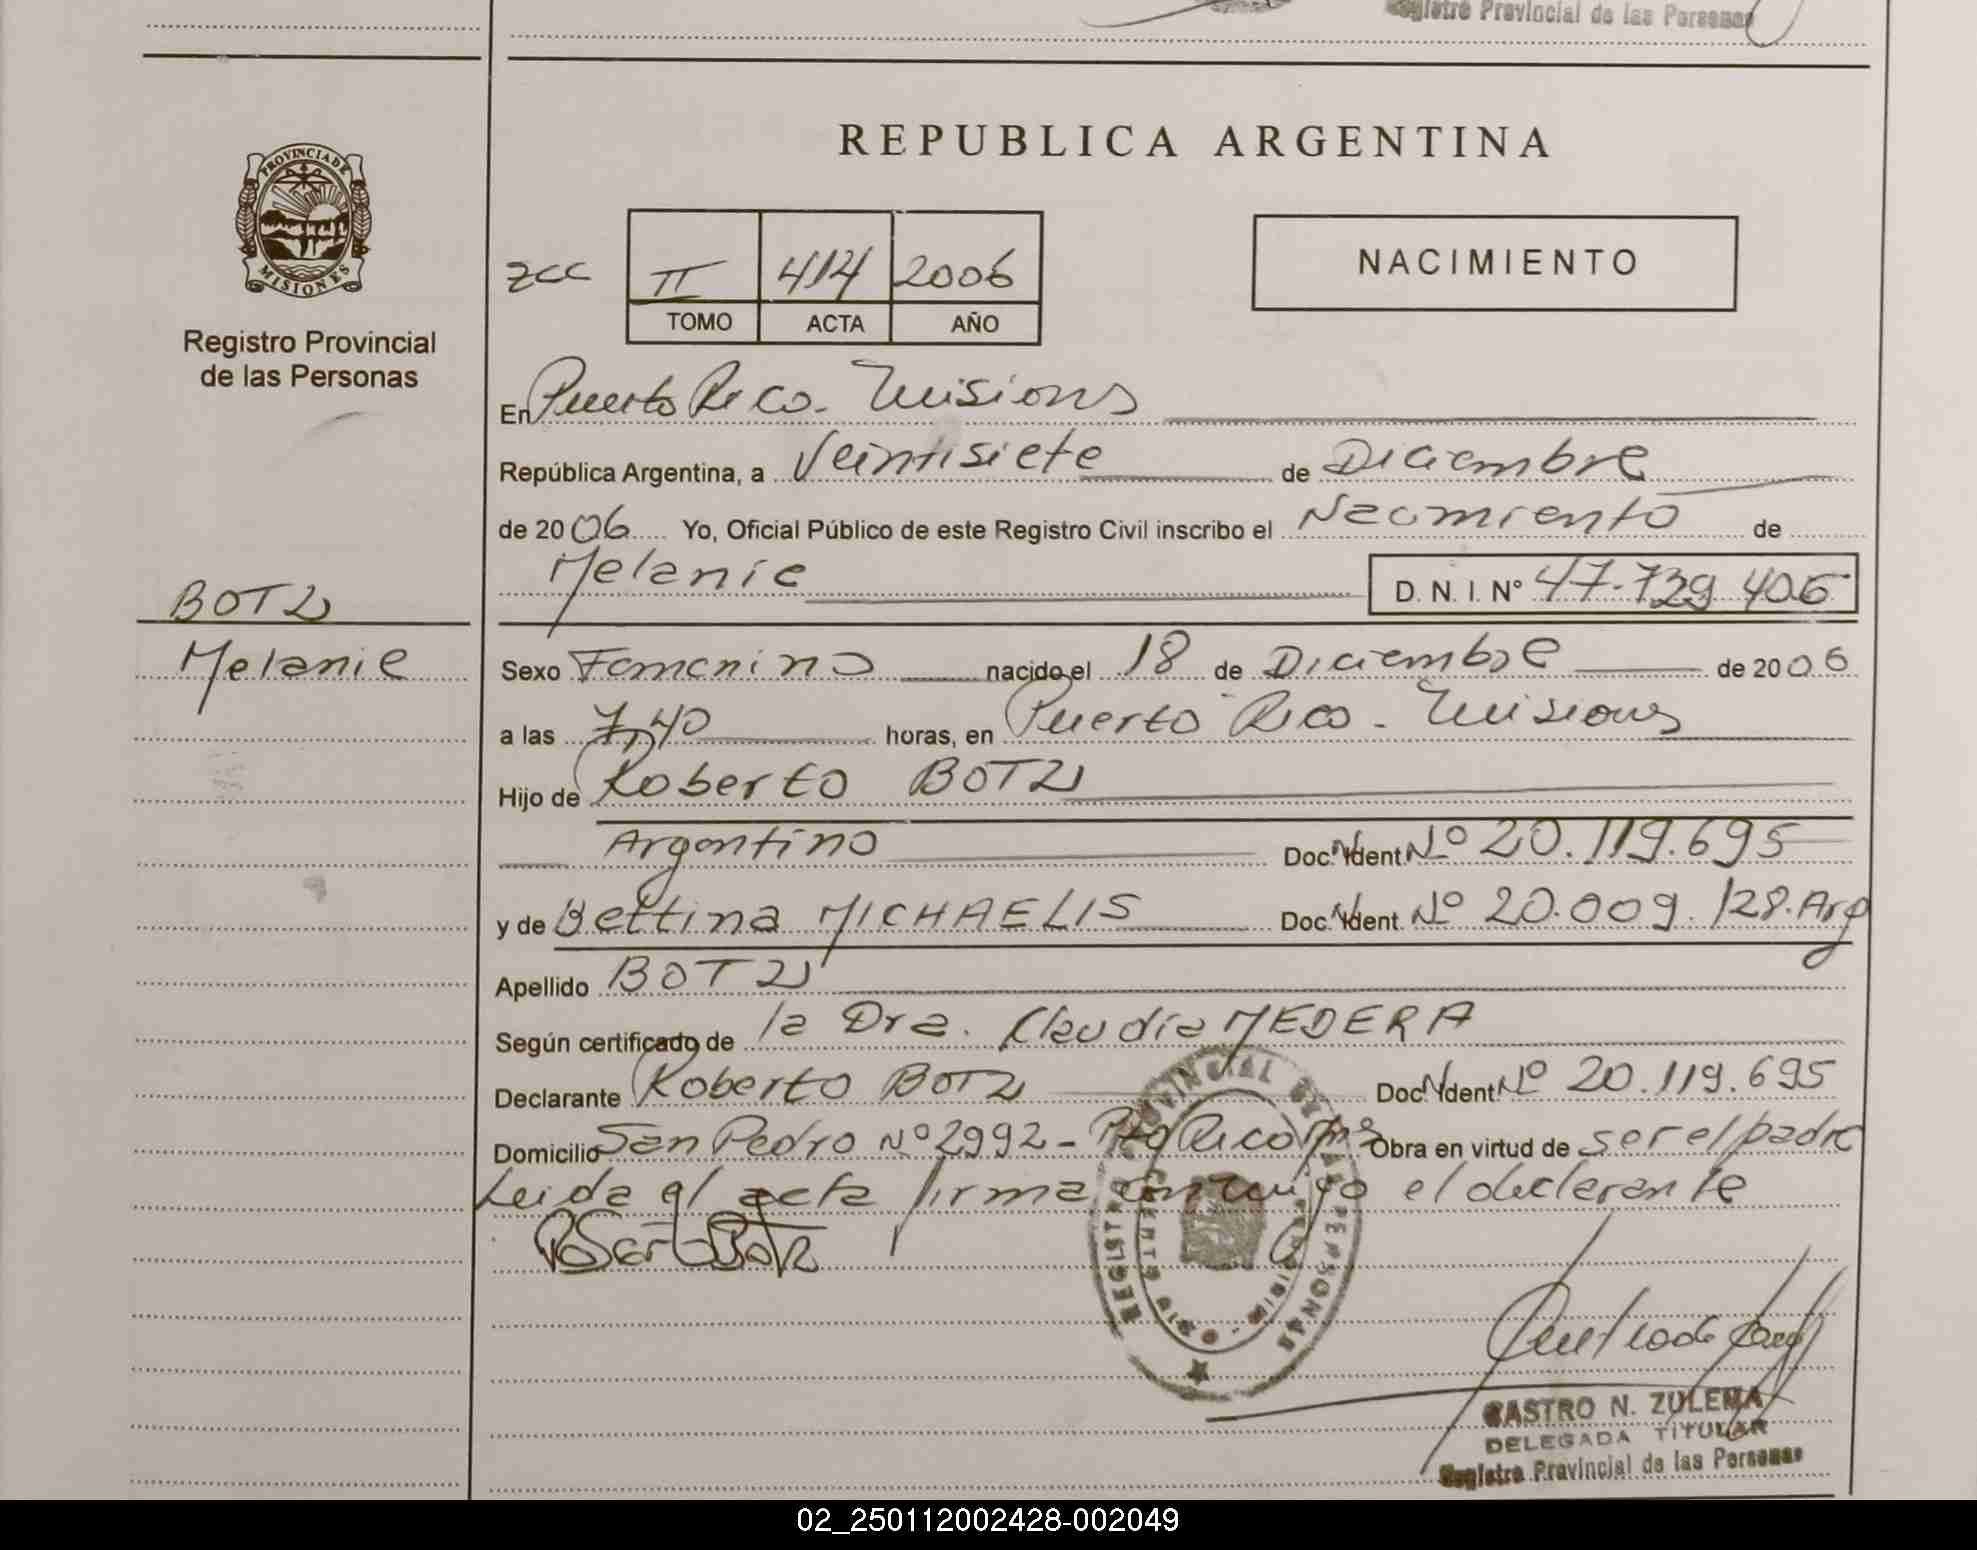 Registro Provincial de las Personas
PROVINCIA DE
MISIONES
Registro Provincial
de las Personas
REPUBLICA ARGENTINA
zcc II 414 2006
TOMO ACTA AÑO
NACIMIENTO
En Puerto Rico. Misiones
República Argentina, a Veintisiete de Diciembre
de 2006 Yo, Oficial Público de este Registro Civil inscribo el Nacimiento de
Melanie D. N. I. N° 47.729.406
BOTZ
Melanie
Sexo Femenino nacido el 18 de Diciembre de 2006
a las 7,40 horas, en Puerto Rico - Misiones
Hijo de Roberto BOTZ
Argentino Doc. Ident Nº 20.119.695
y de Bettina MICHAELIS Doc. Ident. Nº 20.009.128. Arg
Apellido BOTZ
Según certificado de la Dra. Claudia MEDERA
Declarante Roberto BOTZ Doc. Ident Nº 20.119.695
Domicilio San Pedro Nº 2992 - Pto Rico Mns Obra en virtud de ser el padre
Leida el acta firma conmigo el declarante
Roberto Botz
REGISTRO PROVINCIAL DE LAS PERSONAS
CASTRO N. ZULEMA
DELEGADA TITULAR
Registro Provincial de las Personas
02_250112002428-002049